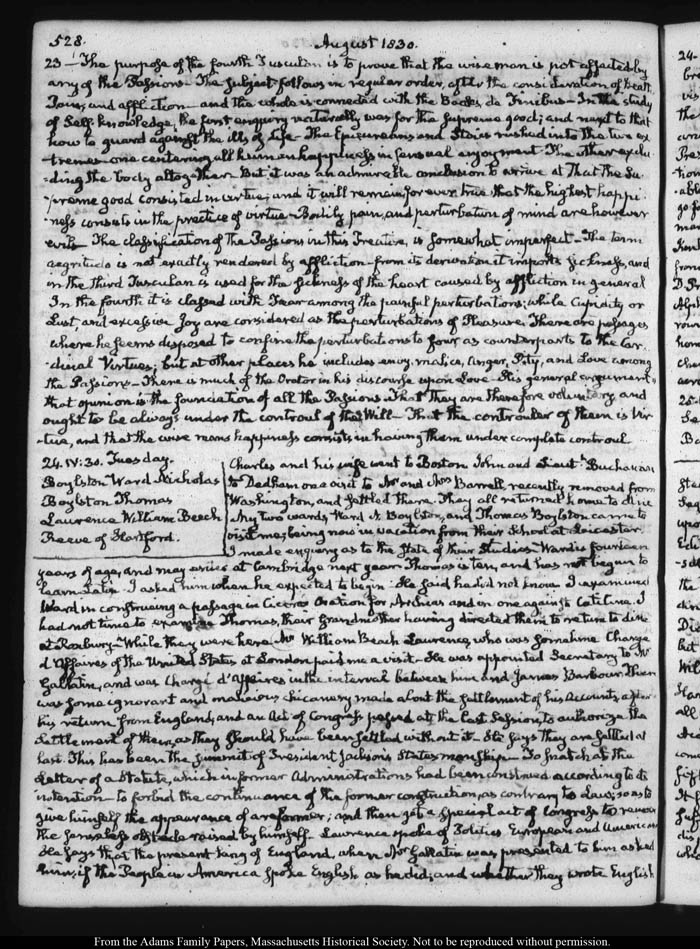 528. August 1830.
23 — The purpose of the fourth Tusculan is to prove that the wise man is not affected by
any of the Passions. The subject follows in regular order, after the consideration of Death,
Pain, and affliction — and the whole is connected with the Books, de Finibus — In the study
of Self-knowledge, the first enquiry naturally was for the supreme good; and next to that
how to guard against the ills of Life — The Epicureans and Stoics rushed into the two ex
tremes — one centering all human happiness in sensual enjoyment The other exclu
-ding the body altogether But it was an admirable conclusion to arrive at That the Su-
-preme good consisted in virtue, and it will remain forever true that the highest happi-
ness consists in the practice of virtue — Bodily pain, and perturbation of mind are however
evils — The classification of the Passions in this Treatise, is somewhat imperfect — The term
aegritudo is not exactly rendered by affliction — from its derivation it imports sickness, and
in the third Tusculan is used for the sickness of the heart caused by affliction in general
In the fourth it is classed with Fear among the painful perturbations; while Cupidity or
Lust, and excessive Joy are considered as the perturbations of Pleasure. There are passages
where he seems disposed to confine the perturbations to four as counterparts to the Car-
-dinal Virtues; but at other places he includes envy, malice, Anger, Pity, and Love among
the Passions — There is much of the Orator in his discourse upon Love — His general argument is
that opinion is the foundation of all the Passions. That They are therefore voluntary, and
ought to be always under the controul of the Will — That the controuler of them is Vir-
-tue, and that the wise mans happiness consists in having them under complete controul.
24. IV:30. Tuesday.
Boylston Ward Nicholas
Boylston Thomas
Lawrence William Beech
Reeve of Hartford.
Charles and his wife went to Boston John and Lieut. Buchanan
to Dedham on a visit to Mr and Mrs Barrell, recently removed from
Washington, and settled there. They all returned home to dine
My two wards, Ward N. Boylston, and Thomas Boylston came to
visit me; being now in vacation from their School at Leicester.
I made enquiry as to the State of their Studies — Ward is fourteen
years of age, and may enter at Cambridge next year. Thomas is ten, and has not begun to
learn Latin I asked him when he expected to begin He said he did not know I examined
Ward in construing a passage in Cicero's Oration for Archias and in one against Catiline. I
had not time to examine Thomas, their Grandmother having directed them to return to dine
at Roxbury — While they were here Mr William Beach Lawrence, who was sometime Chargé
d'Affaires of the United States at London paid me a visit — He was appointed Secretary to Mr
Gallatin, and was Chargé d'Affaires in the interval between him and James Barbour. There
was some ignorant and malicious chicanery made about the settlement of his Accounts after
his return from England, and an Act of Congress passed at the last Session, to authorize the
settlement of them, as they should have been settled without it. He says they are settled at
last. This has been the summit of President Jackson's Statesmanship — To snatch at the
Letter of a Statute, which in former Administrations had been construed according to its
intention — to forbid the continuance of the former construction, as contrary to Law; so as to
give himself the appearance of a reformer; and then get a special act of Congress to remove
the senseless obstacle raised by himself. Lawrence spoke of Politics European and American
He says that the present king of England, when Mr Gallatin was presented to him asked
him, if the People in America spoke English as he did; and whether they wrote English
From the Adams Family Papers, Massachusetts Historical Society. Not to be reproduced without permission.